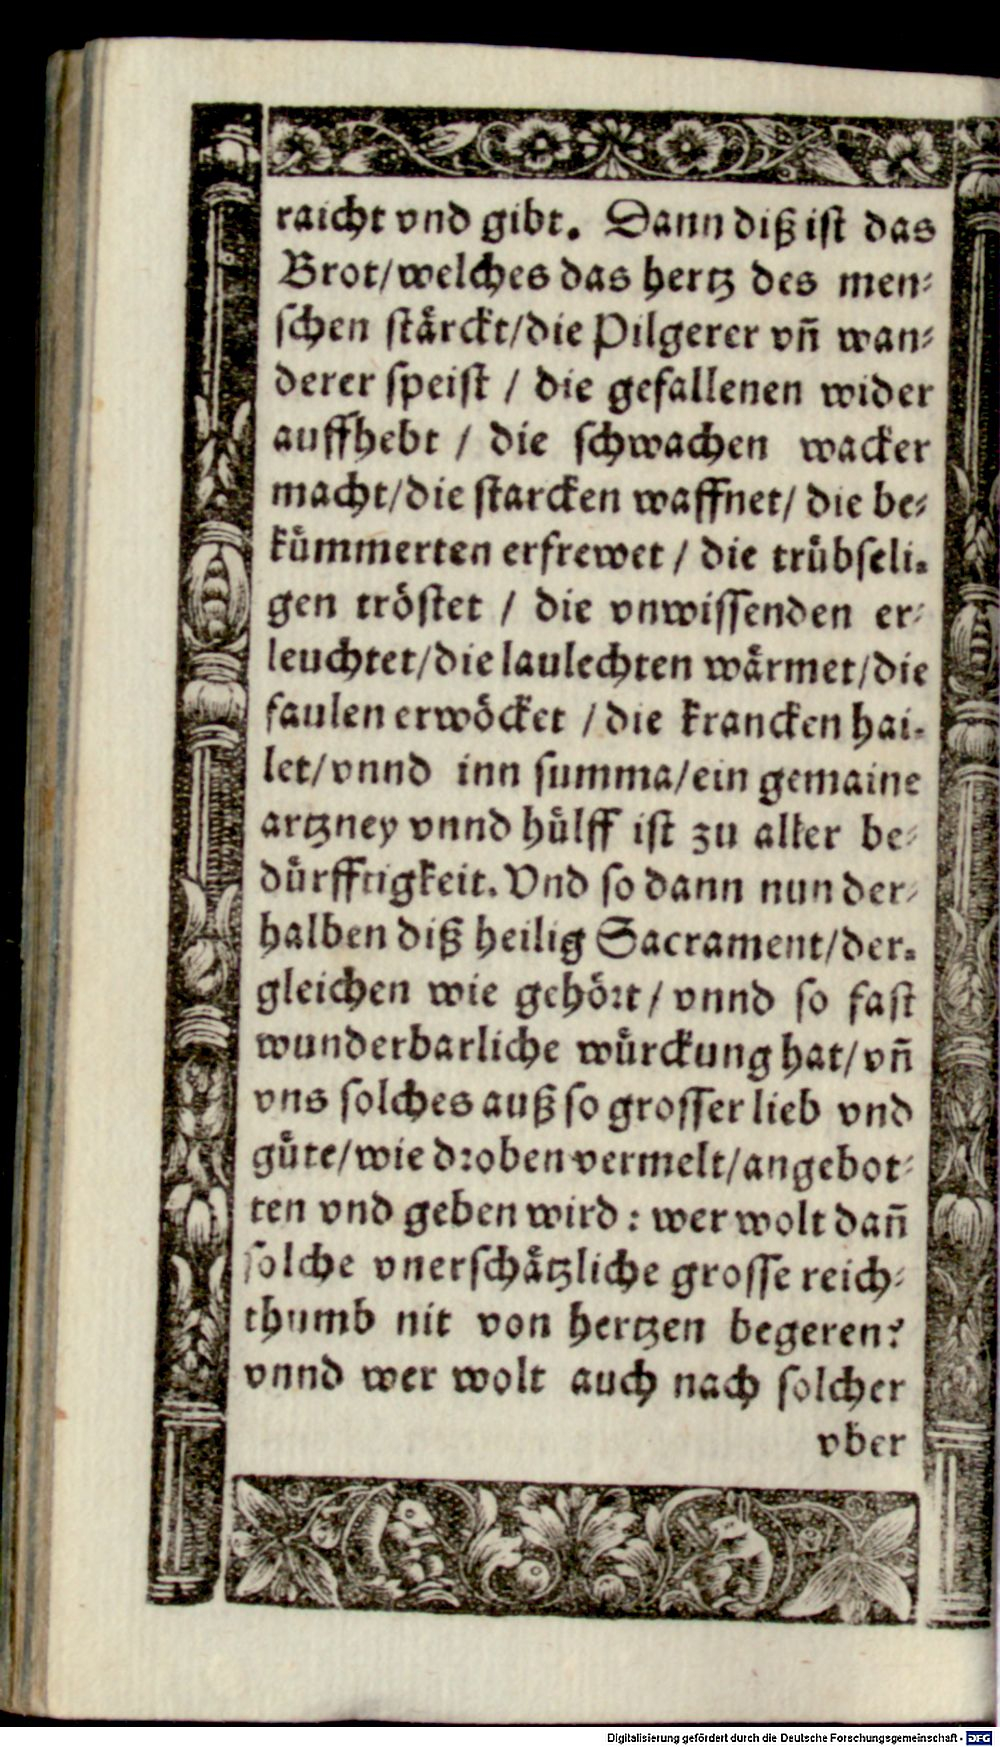 raicht vnd gibt. Dann diß ist das
Brot/welches das hertz des men-
schen stärckt/die Pilgerer vñ wan-
derer speist / die gefallenen wider
auffhebt / die schwachen wacker
macht/die starcken waffnet/ die be-
kümmerten erfrewet / die trübseli-
gen tröstet / die vnwissenden er-
leuchtet/die laulechten wärmet/die
faulen erwöcket / die krancken hai-
let/vnnd inn summa/ein gemaine
artzney vnnd hülff ist zu aller be-
dürfftigkeit. Vnd so dann nun der-
halben diß heilig Sacrament/der-
gleichen wie gehört/ vnnd so fast
wunderbarliche würckung hat/vñ
vns solches auß so grosser lieb vnd
güte/wie droben vermelt/angebot-
ten vnd geben wird: wer wolt dañ
solche vnerschätzliche grosse reich-
thumb nit von hertzen begeren?
vnnd wer wolt auch nach solcher
vber
Digitalisierung gefördert durch die Deutsche Forschungsgemeinschaft - DFG